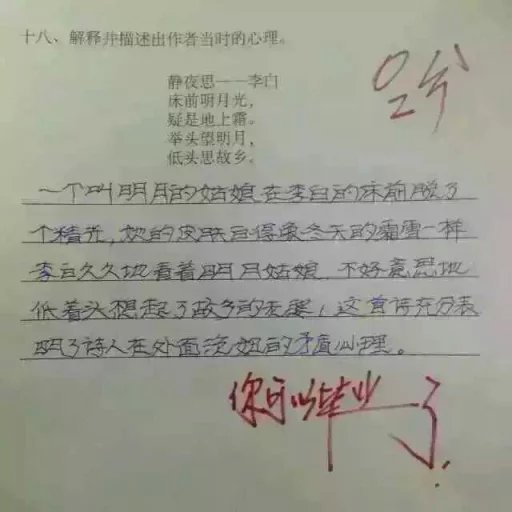 十八、解释并描述出作者当时的心理。
静夜思——李白
床前明月光，
疑是地上霜。
举头望明月，
低头思故乡。
0分
一个叫明月的姑娘在李白的床前脱了
个精光，她的皮肤白得象冬天的霜雪一样
李白久久地看着明月姑娘，不好意思地
低着头想起了故乡的老婆，这首诗充分表
明了诗人在外面泡妞的矛盾心理。
你可以毕业了.